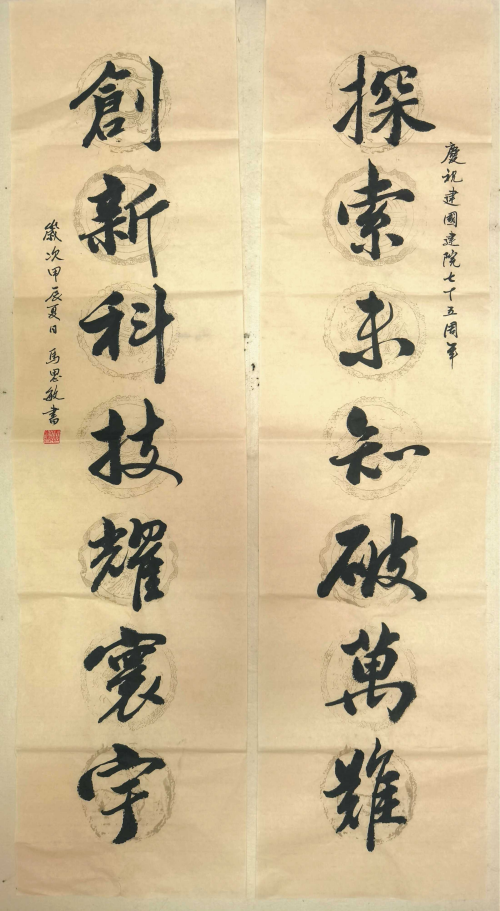 慶祝建國建院七十五周年
探索未知破萬難
創新科技耀寰宇
歲次甲辰夏日 馬思敏書